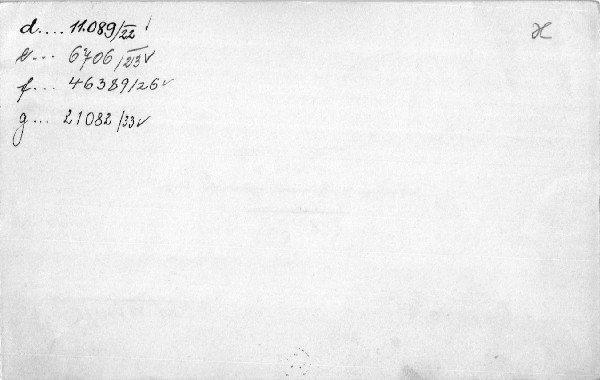 d.... 11.089/22
e... 6706/23 ✓
f... 46389/26 ✓
g... 21082/33 ✓